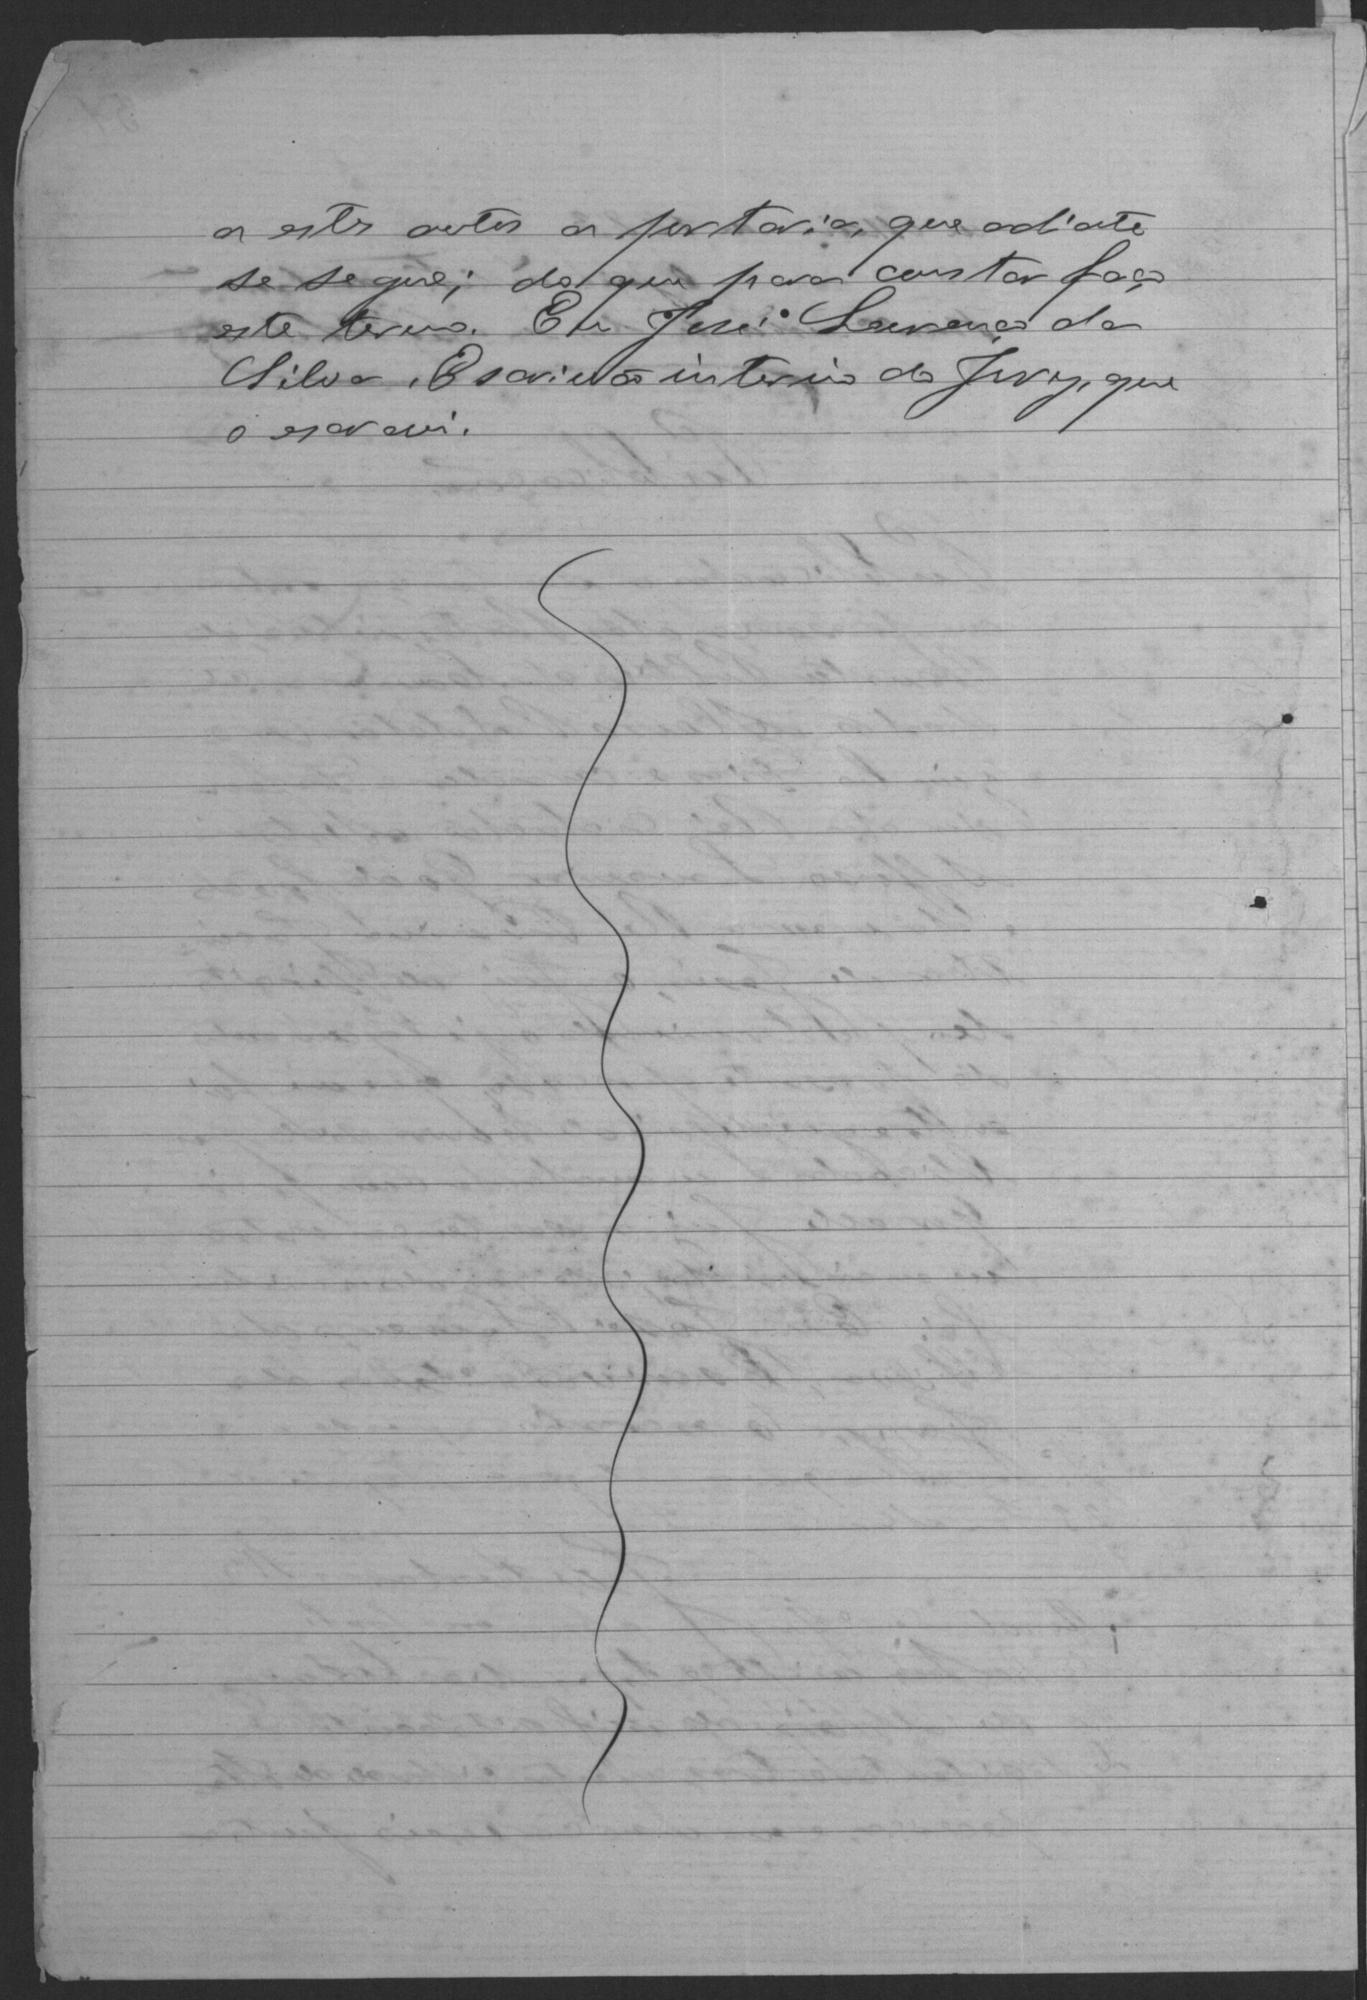 a estes autos a portaria, que adiante
se segue; do que para constar faço
este termo. Eu José Lourenço da
Silva, Escrivão interino do Jury, que
o escrevi.